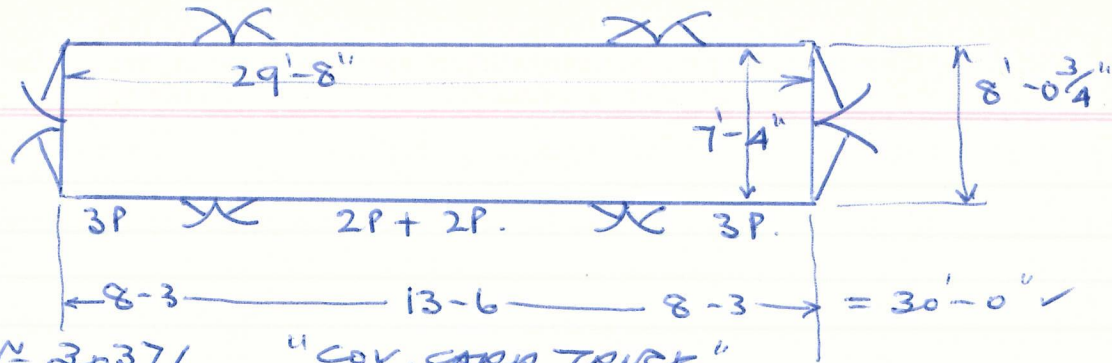 29'-8"
8'-0 3/4"
7'-4"
3P 2P + 2P. 3P.
8-3 13-6 8-3 = 30'-0" ✓